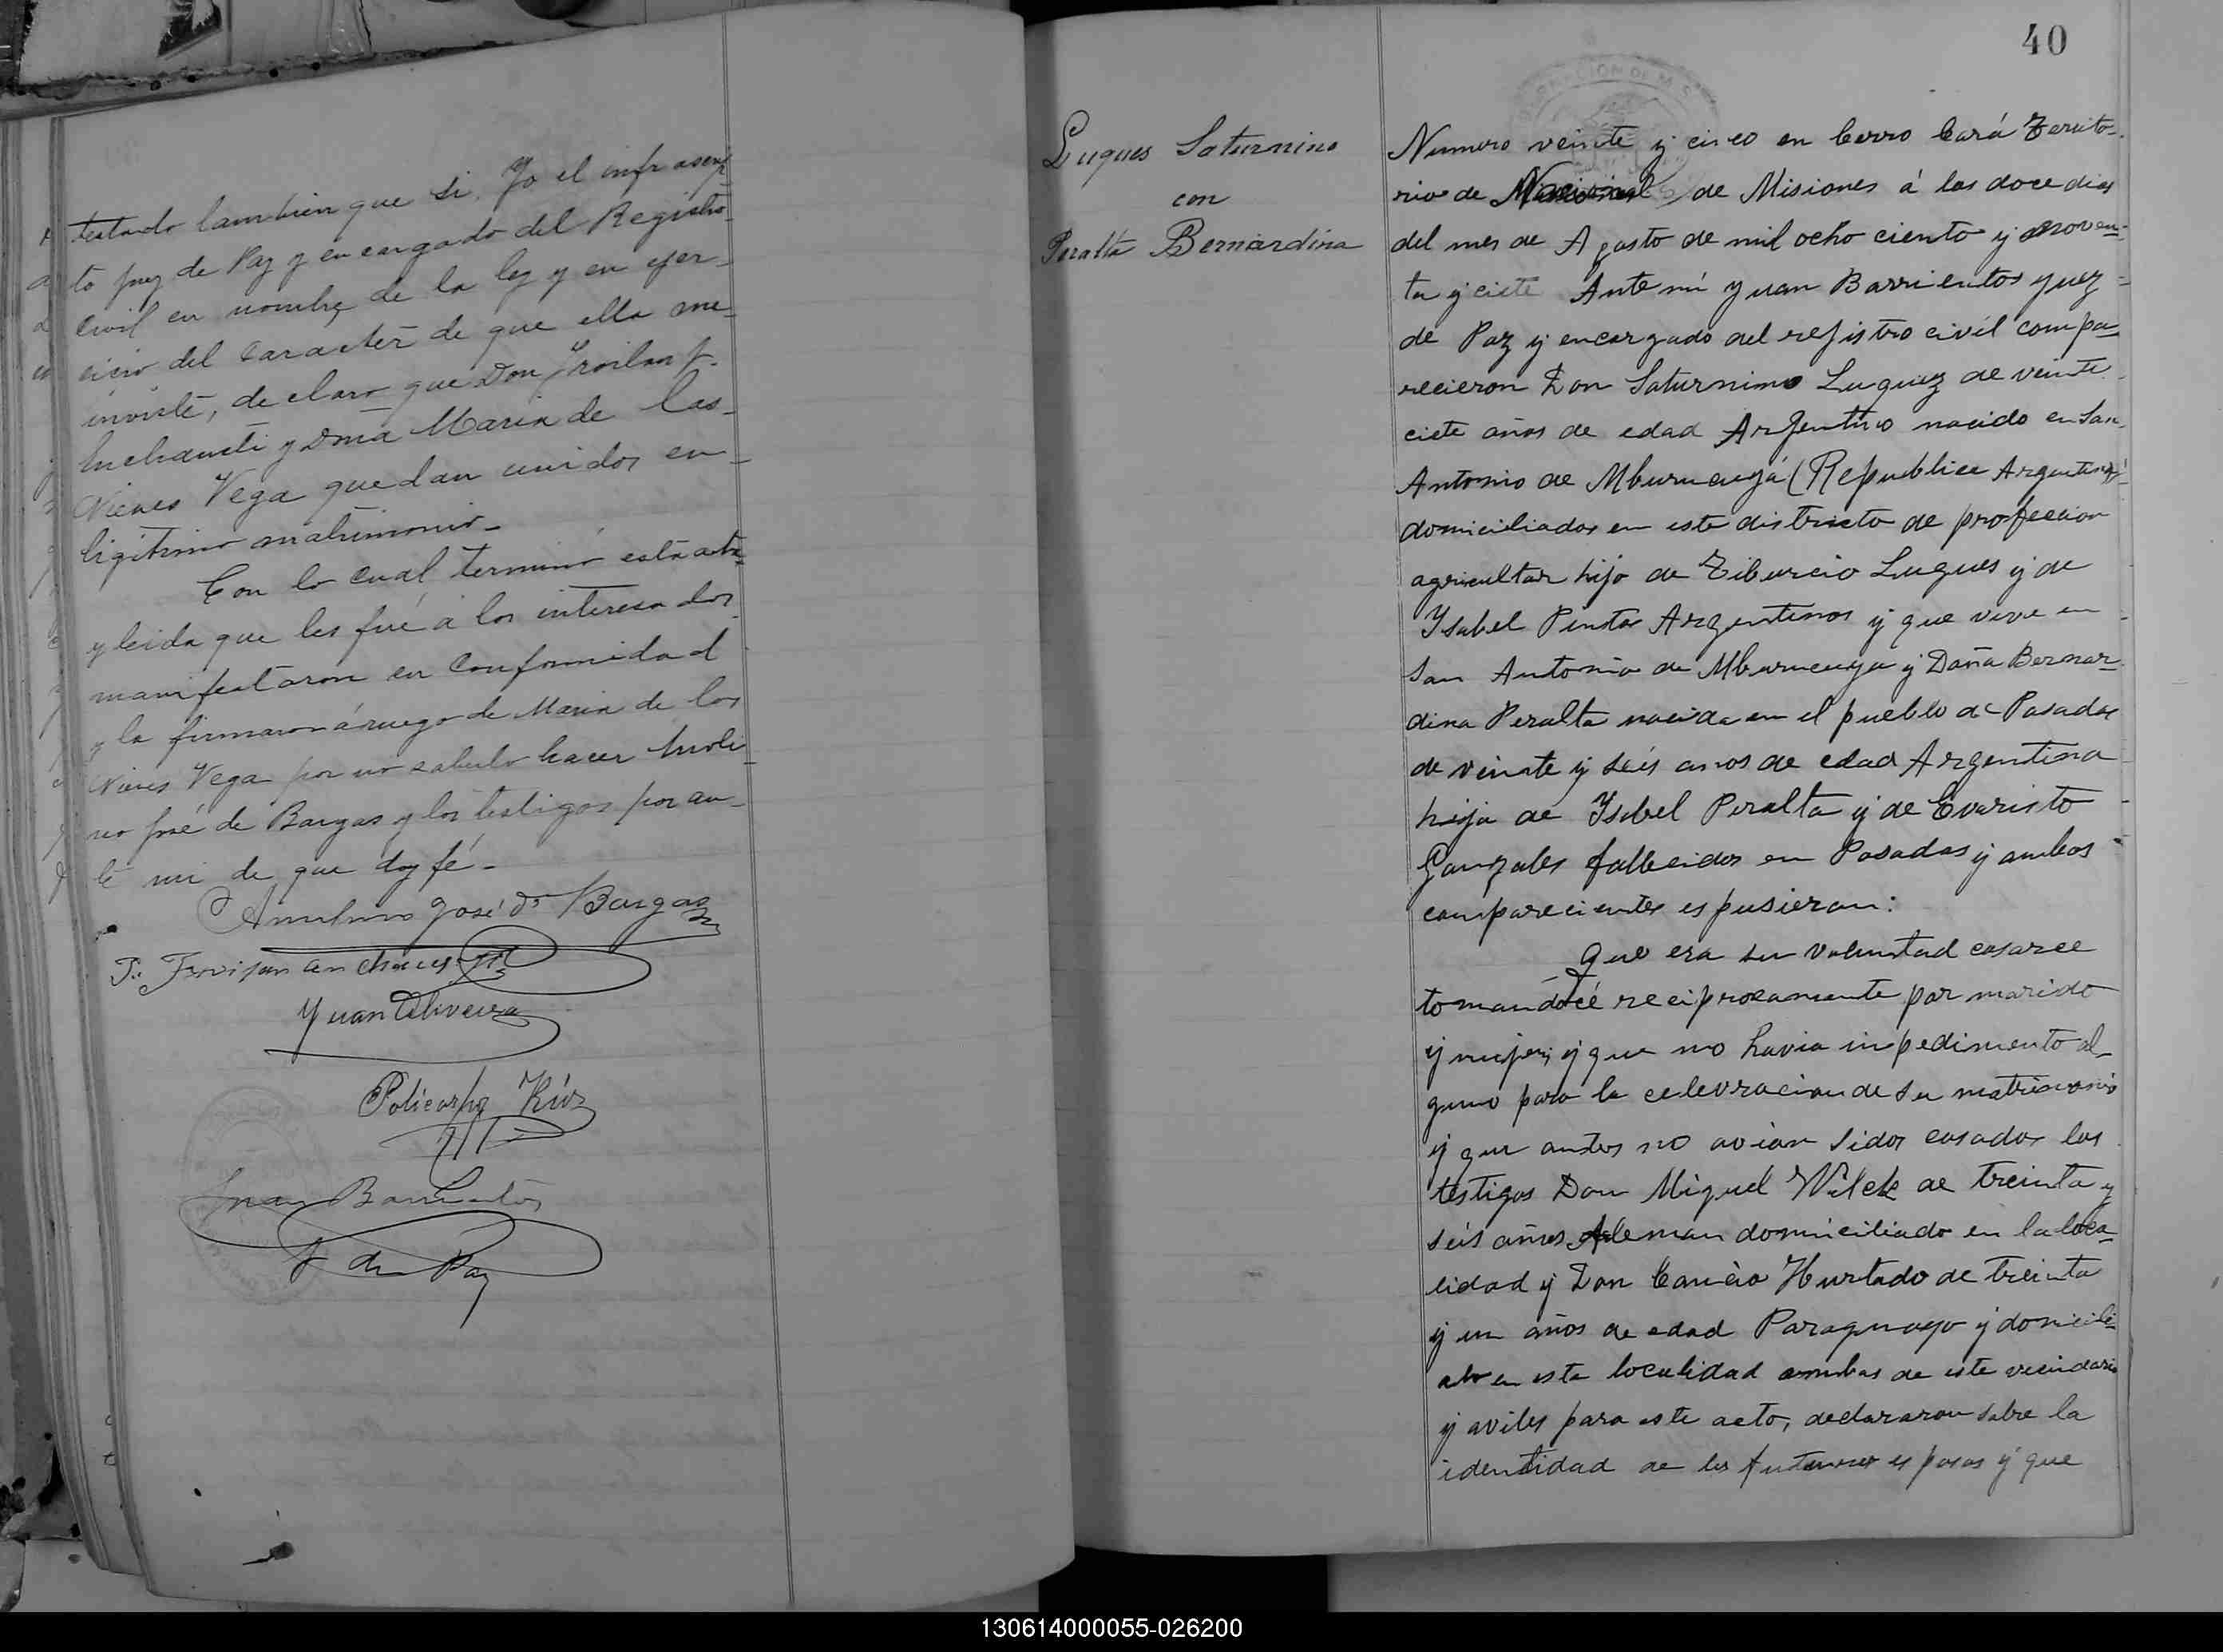 testando tambien que si. Yo el infrascrip-
to juez de Paz y encargado del Registro
Civil en nombre de la ley y en ejer-
cicio del Caracter de que ella me
inviste, declaro que Don Froilan
y Doña Maria de las
Nieves Vega quedan unidos en
ligitimo matrimonio-
Con lo cual termino esta acta
y leida que les fué á los interesados
manifestaron en Conformidad
y la firmaron á ruego de Maria de las
Nieves Vega por no saberlo hacer
José de Bargas y los testigos por an-
te mi de que doy fé-
José de Bargas
Juan Oliveira
Policarpo
Juan Barrientos
J de Paz
40
Luques Saturnino
con
Peralta Bernardina
Numero veinte y cinco en Cerro Corá Territo-
rio de Nacional de Misiones á los doce dias
del mes de Agosto de mil ocho ciento y noven-
ta y ciete Ante mi Yuan Barrientos Yuez
de Paz y encargado del registro civil compa-
recieron Don Saturnino Luquez de veinte
ciete años de edad Argentino nacido en San
Antonio de Mburucuyá (Republica Argentina)
domiciliados en este districto de profeccion
agricultor hijo de Tiburcio Luques y de
Ysabel Pintos Argentinos y que vive en
San Antonio de Mburucuya y Doña Bernar-
dina Peralta nacida en el pueblo de Posadas
de veinte y seis anos de edad Argentina
hija de Ysabel Peralta y de Evaristo
Gonzales fallecidos en Posadas y ambos
comparecientes espusieron:
Que era su voluntad casarce
tomandocé reciprocamente por marido
y mujer; y que no havia inpedimento al-
guno para la celevracion de su matrimonio
y que antes no avian sidos casados los
testigos Don Miguel Wilck de treinta y
seis años Aleman domiciliado en la loca-
lidad y Don Hurtado de treinta
y un años de edad Paraguayo y domicili-
ado en esta localidad ambos de este vecindario
y aviles para este acto, declararon sobre la
identidad de los futuros esposos y que
130614000055-026200